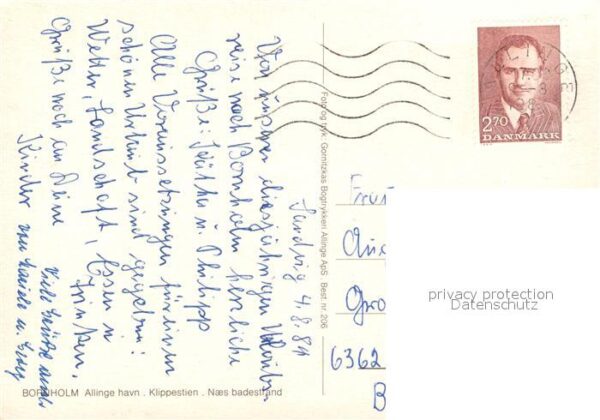 Sandvig 4.8.84
Von unserer diesjährigen Urlaubs-
reise nach Bornholm herzliche
Grüße: Käthe u. Philipp
Alle Voraussetzungen für einen
schönen Urlaub sind gegeben:
Wetter, Landschaft, Essen u
Trinken.
Grüße noch an Deine
Kinder von
Viele Grüße
Foto og tryk: Gornitzkas Bogtrykkeri Allinge ApS Best. nr. 206
2.70
DANMARK
Frau
Gro
6362
B
privacy protection
Datenschutz
BORNHOLM Allinge havn . Klippestien . Næs badestrand